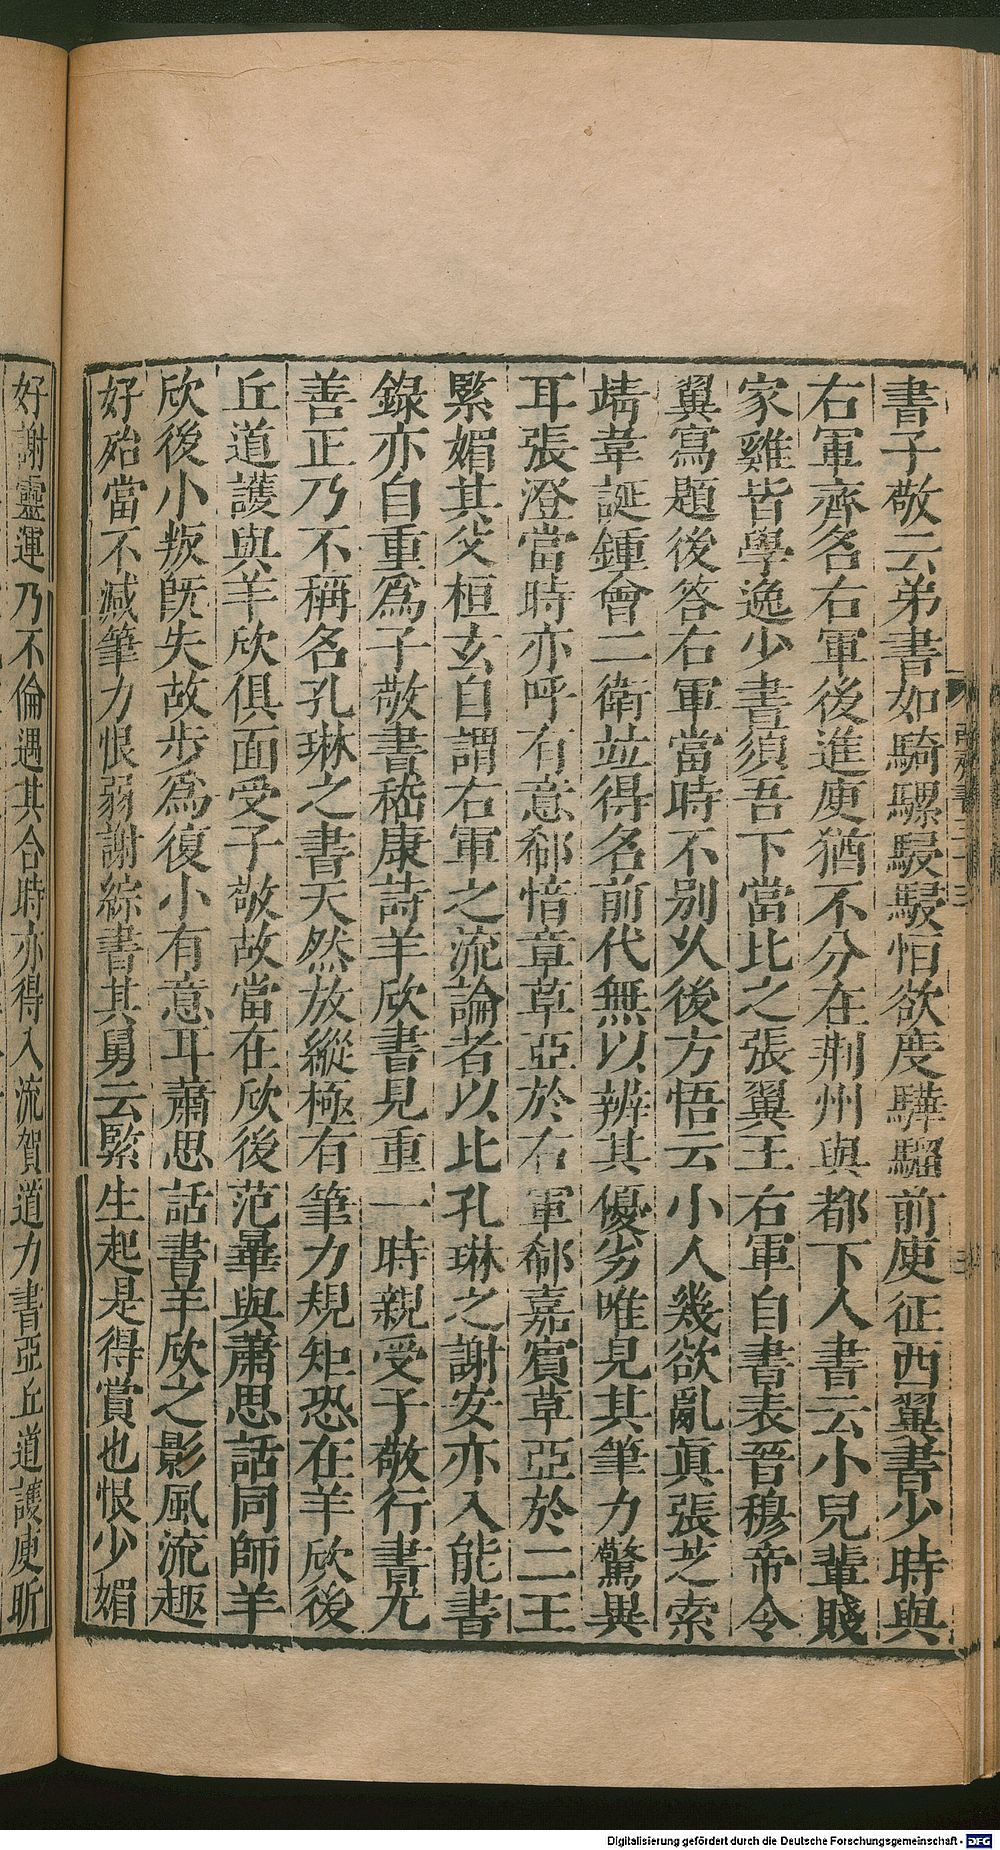 書子敬云弟書如騎騾駸駸恒欲度驊騮前庾征西翼書少時與
右軍齊名右軍後進庾猶不分在荆州與都下人書云小兒輩賤
家雞皆學逸少書須吾下當比之張翼王右軍自書表晉穆帝令
翼寫題後答右軍當時不别久後方悟云小人幾欲亂眞張芝索
靖韋誕鍾會二衛竝得名前代無以辨其優劣唯見其筆力驚異
耳張澄當時亦呼有意郗愔章草亞於右軍郗嘉賓草亞於二王
緊媚其父桓玄自謂右軍之流論者以比孔琳之謝安亦入能書
錄亦自重爲子敬書嵇康詩羊欣書見重一時親受子敬行書尤
善正乃不稱名孔琳之書天然放縱極有筆力規矩恐在羊欣後
丘道護與羊欣俱面受子敬故當在欣後范曅與蕭思話同師羊
欣後小叛旣失故步爲復小有意耳蕭思話書羊欣之影風流趣
好殆當不減筆力恨弱謝綜書其舅云緊生起是得賞也恨少媚
好謝靈運乃不倫遇其合時亦得入流賀道力書亞丘道護庾昕
Digitalisierung gefördert durch die Deutsche Forschungsgemeinschaft - DFG